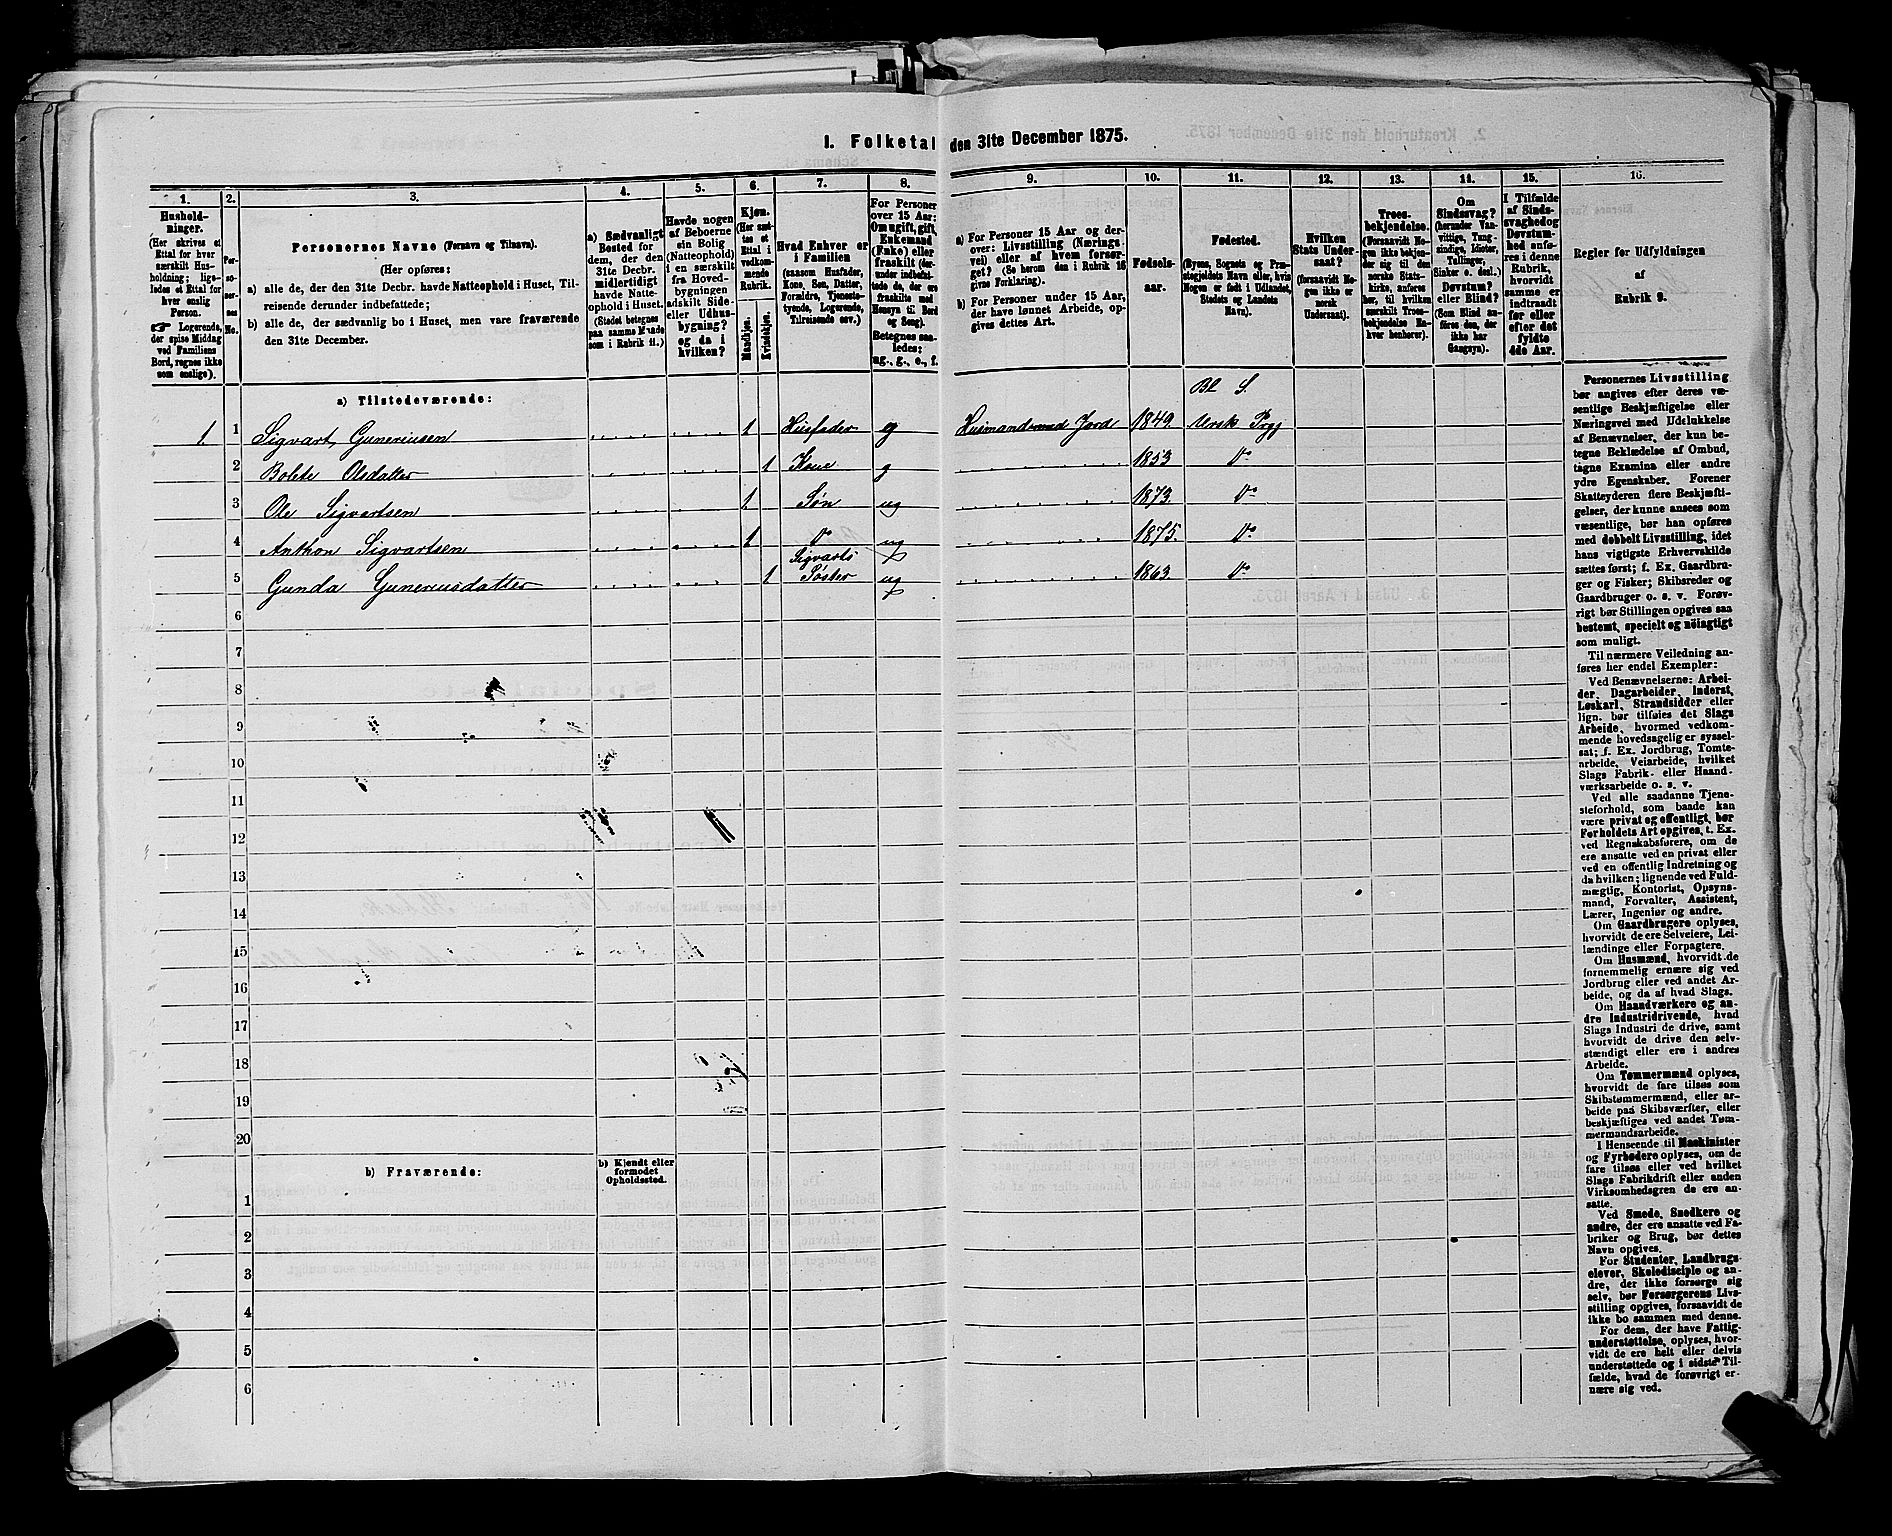 I. Folketal den 31te December 1875.
1. 2. 3. 4. 5. 6. 7. 8. 9. 10. 11. 12. 13. 14. 15. 16.
Hushold-
ninger.
(Her skrives et
Ettal for hver
særskilt Hus-
holdning; lige-
ledes et Ettal for
hver enslig
Person.
☞ Logerende,
der spise Middag
ved Familiens
Bord, regnes ikke
som enslige).
Per-
so-
ner-
nes
No.
Personernes Navne (Fornavn og Tilnavn).
(Her opføres:
a) alle de, der den 31te Decbr. havde Natteophold i Huset, Til-
reisende derunder indbefattede;
b) alle de, der sædvanlig bo i Huset, men vare fraværende
den 31te December.
a) Sædvanligt
Bosted for
dem, der den
31te Decbr.
midlertidigt
havde Natte-
ophold i Huset.
(Stedet betegnes
paa samme Maade
som i Rubrik 11.)
Havde nogen
af Beboerne
sin Bolig
(Natteophold)
i en særskilt
fra Hoved-
bygningen
adskilt Side-
eller Udhus-
bygning?
og da i
hvilken?
Kjøn.
(Her sæt-
tes et
Ettal i
vedkom-
mende
Rubrik.
Mandkjøn.
Kvindekjøn.
Hvad Enhver er
i Familien
(saasom Husfader,
Kone, Søn, Datter,
Forældre, Tjeneste-
tyende, Logerende,
Tilreisende osv.)
For Personer
over 15 Aar:
Om ugift, gift,
Enkemand
(Enke) eller
fraskilt (der-
under indbefat-
tede de, der ere
fraskilte med
Hensyn til Bord
og Seng).
Betegnes saa-
ledes:
ug., g., e., f.
a) For Personer 15 Aar og der-
over: Livsstilling (Nærings-
vei) eller af hvem forsør-
get? (Se herom den i Rubrik 16
givne Forklaring).
b) For Personer under 15 Aar,
der have lønnet Arbeide, op-
gives dettes Art.
Fødsels-
aar.
Fødested.
(Byens, Sognets og Præ-
stegjeldets Navn eller, hvis
Nogen er født i Udlandet,
Stedets og Landets
Navn).
Hvilken
Stats Under-
saat?
(forsaavidt No-
gen ikke er
norsk
Undersaat).
Troes-
bekjendelse.
(Forsaavidt No-
gen ikke bekjen-
der sig til den
norske Stats-
kirke, anføres
her, til hvilken
særskilt Troes-
bekjendelse En-
hver henhører).
Om
Sindssvag?
(herunder Van-
vittige, Tung-
sindige, Idioter,
Tullinger,
Sinker o. desl.)
Døvstum?
eller Blind?
(Som Blind an-
føres den, der
ikke har
Gangsyn).
I Tilfælde
af Sinds-
svaghed og
Døvstum-
hed anfø-
res i denne
Rubrik,
hvorvidt
samme er
indtraadt
før eller
efter det
fyldte
4de Aar.
Regler for Udfyldningen
af
Rubrik 9.
a) Tilstedeværende:
Bl S.
1. 1 Sigvart, Guneriusen 1 Husfader g Husmand med Jord 1849 Ursk Prgj
2 Bolete Olsdatter 1 Kone g 1853 Do
3 Ole Sigvartsen 1 Søn ug 1873. Do
4 Anthon Sigvartsen 1 Do ug 1875. Do
5 Gunda Guneriusdatter 1 Sigvarts Søster ug 1863 Do
6
7
8
9
10
11
12
13
14
15
16
17
18
19
20
b) Fraværende:
b) Kjendt eller
formodet
Opholdssted.
1
2
3
4
5
6
Personernes Livsstilling
bør angives efter deres væ-
sentlige Beskjæftigelse eller
Næringsvei med Udelukkelse
af Benævnelser, der kun be-
tegne Beklædelse af Ombud,
tagne Examina eller andre
ydre Egenskaber. Forener
Skatteyderen flere Beskjæfti-
gelser, der kunne ansees som
væsentlige, bør han opføres
med dobbelt Livsstilling, idet
hans vigtigste Erhvervskilde
sættes først; f. Ex. Gaardbru-
ger og Fisker; Skibsreder og
Gaardbruger o. s. v. Forøv-
rigt bør Stillingen opgives saa
bestemt, specielt og nøiagtigt
som muligt.
Til nærmere Veiledning an-
føres her endel Exempler:
Ved Benævnelserne: Arbei-
der, Dagarbeider, Inderst,
Løskarl, Strandsidder eller
lign. bør tilføies det Slags
Arbeide, hvormed vedkom-
mende hovedsagelig er syssel-
sat; f. Ex. Jordbrug, Tomte-
arbeide, Veiarbeide, hvilket
Slags Fabrik- eller Haand-
værksarbeide o. s. v.
Ved alle saadanne Tjene-
steforhold, som baade kan
være privat og offentligt, bør
Forholdets Art opgives, f. Ex.
ved Regnskabsførere, om de
ere ansatte ved en privat eller
ved en offentlig Indretning og
da hvilken; lignende ved Fuld-
mægtig, Kontorist, Opsyns-
mand, Forvalter, Assistent,
Lærer, Ingeniør og andre.
Om Gaardbrugere oplyses,
hvorvidt de ere Selveiere, Lei-
lændinge eller Forpagtere.
Om Husmænd, hvorvidt de
fornemmelig ernære sig ved
Jordbrug eller ved andet Ar-
beide, og da af hvad Slags.
Om Haandværkere og an-
dre Industridrivende, hvad
Slags Industri de drive, samt
hvorvidt de drive den selv-
stændigt eller ere i andres
Arbeide.
Om Tømmermænd oplyses,
hvorvidt de fare tilsøs som
Skibstømmermænd, eller ar-
beide paa Skibsværfter, eller
beskjæftiges ved andet Tøm-
mermandsarbeide.
I Henseende til Maskinister
og Fyrbødere oplyses, om de
fare tilsøs eller ved hvilket
Slags Fabrikdrift eller anden
Virksomhedsgren de ere an-
satte.
Ved Smede, Snedkere og
andre, der ere ansatte ved Fa-
briker og Brug, bør dettes
Navn opgives.
For Studenter, Landbrugs-
elever, Skoledisciple og an-
dre, der ikke forsørge sig
selv, bør Forsørgerens Livs-
stilling opgives, forsaavidt de
ikke bo sammen med denne.
For dem, der have Fattig-
understøttelse, oplyses, hvor-
vidt de ere helt eller delvis
understøttede og i sidste Til-
fælde, hvad de forøvrigt er-
nære sig ved.